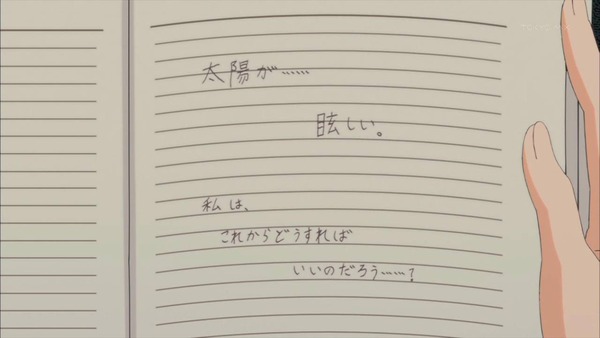 太陽が……
眩しい。
私は、
これからどうすれば
いいのだろう……?